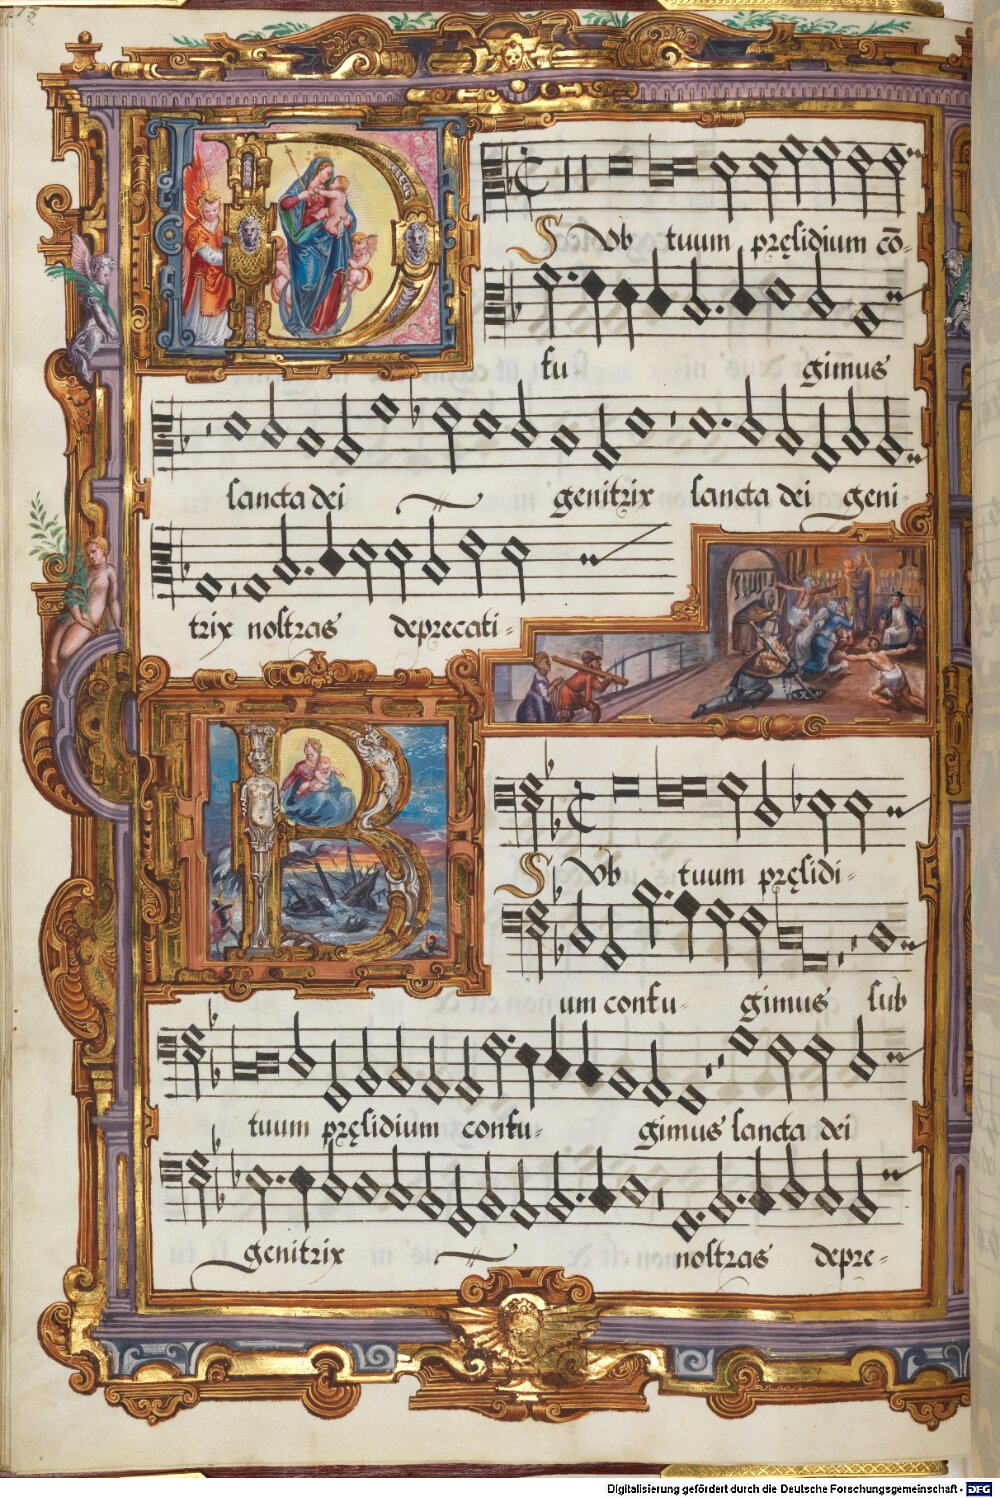 D
SVb tuum pręsidium cō-
fu- gimus
sancta dei genitrix sancta dei geni-
trix nostras deprecati-
B
SVb tuum pręsidi-
um confu- gimus sub
tuum pręsidium confu- gimus sancta dei
genitrix nostras depre-
Digitalisierung gefördert durch die Deutsche Forschungsgemeinschaft - DFG